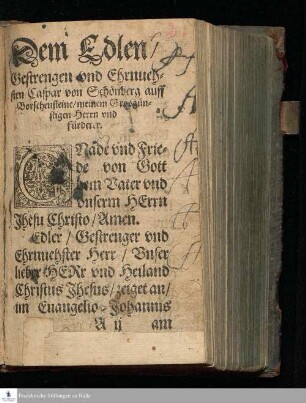 Dem Edlen/
Gestrengen vnd Ehrnueh-
sten Caspar von Schönberg auff
Borschenstein/ meinem Grosgün-
stigen Herrn vnd
Fürderer.
GNade vnd Frie-
de von Gott
dem Vater vnd
vnserm HErrn
Jhesu Christo/ Amen.
Edler/ Gestrenger vnd
Ehrnuehster Herr/ Vnser
lieber HERr vnd Heiland
Christus Jhesus/ zeiget an/
im Euangelio Johannis
A ij am
Franckesche Stiftungen zu Halle